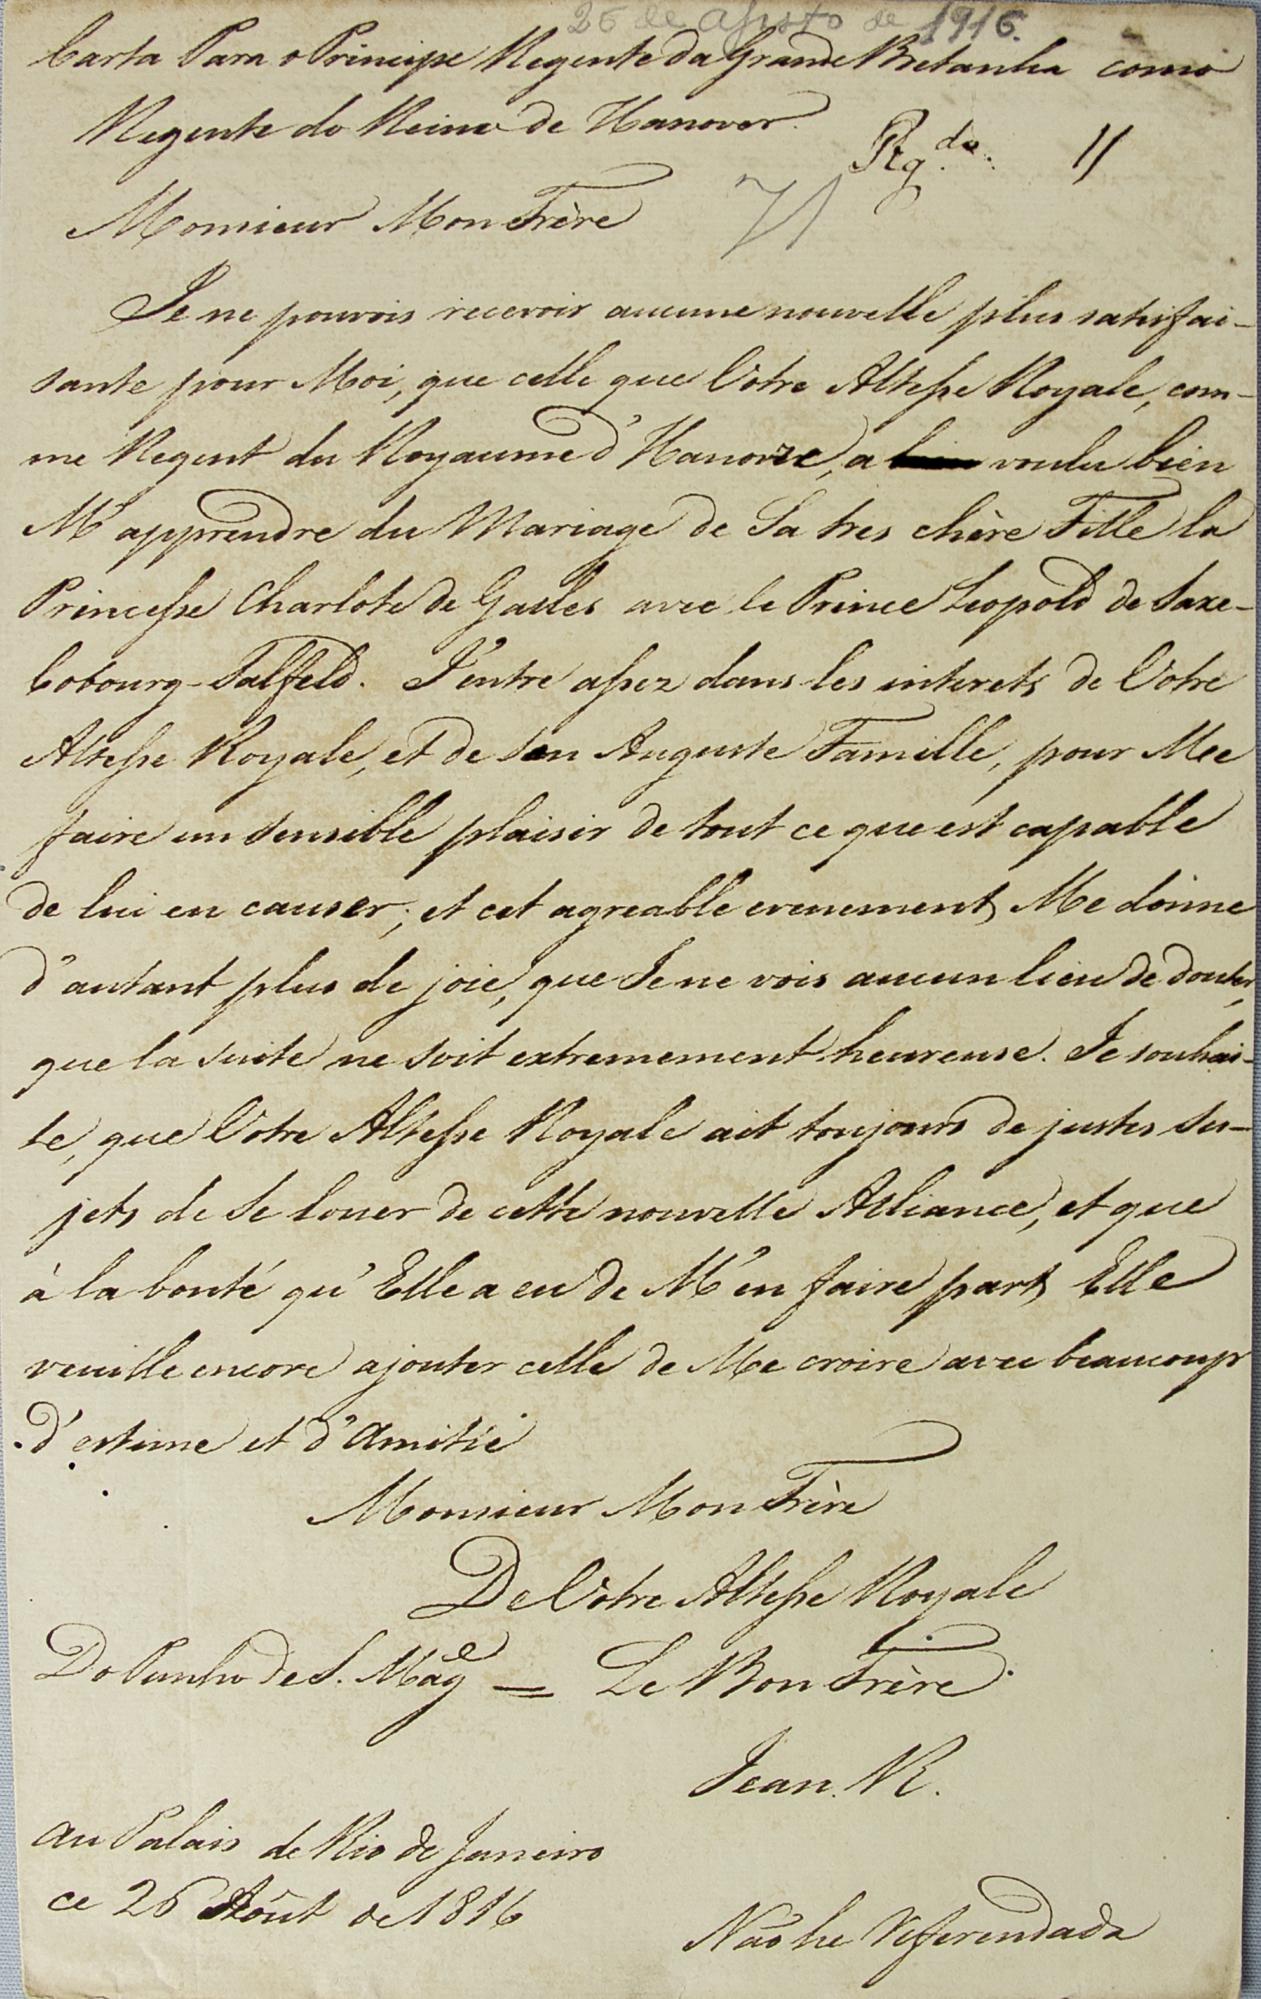 26 de Agosto de 1916.
Carta Para o Principe Regente da Grande Bretanha como
Regente do Reino de Hanover.
Rg.da. 11
Monsieur Mon Frère
71
Je ne pouvois recevoir aucune nouvelle plus satisfai-
sante pour Moi, que celle que Votre Altesse Royale, com-
me Regent du Royaume d'Hanovre, a voulu bien
M'apprendre du Mariage de Sa tres chère Fille la
Princesse Charlote de Galles avec le Prince Leopold de Saxe-
Cobourg-Salfeld. J'entre assez dans les interets de Votre
Altesse Royale, et de son Auguste Famille, pour Me
faire un sensible plaisir de tout ce que est capable
de lui en causer; et cet agreable evenement Me donne
d'autant plus de joie, que Je ne vois aucun lieu de douter,
que la suite ne soit extremement heureuse. Je souhai-
te, que Votre Altesse Royale ait toujours de justes su-
jets de Se louer de cette nouvelle Alliance, et que
à la bonté qu'Elle a eu de M'en faire part Elle
veuille encore ajouter celle de Me croire avec beaucoup
d'estime et d'Amitié
Monsieur Mon Frère
De Votre Altesse Royale
Do Punho de S. Mag.e = Le Bon Frère.
Jean. R.
Au Palais de Rio de Janeiro
ce 26 Août de 1816
Não he Referendada